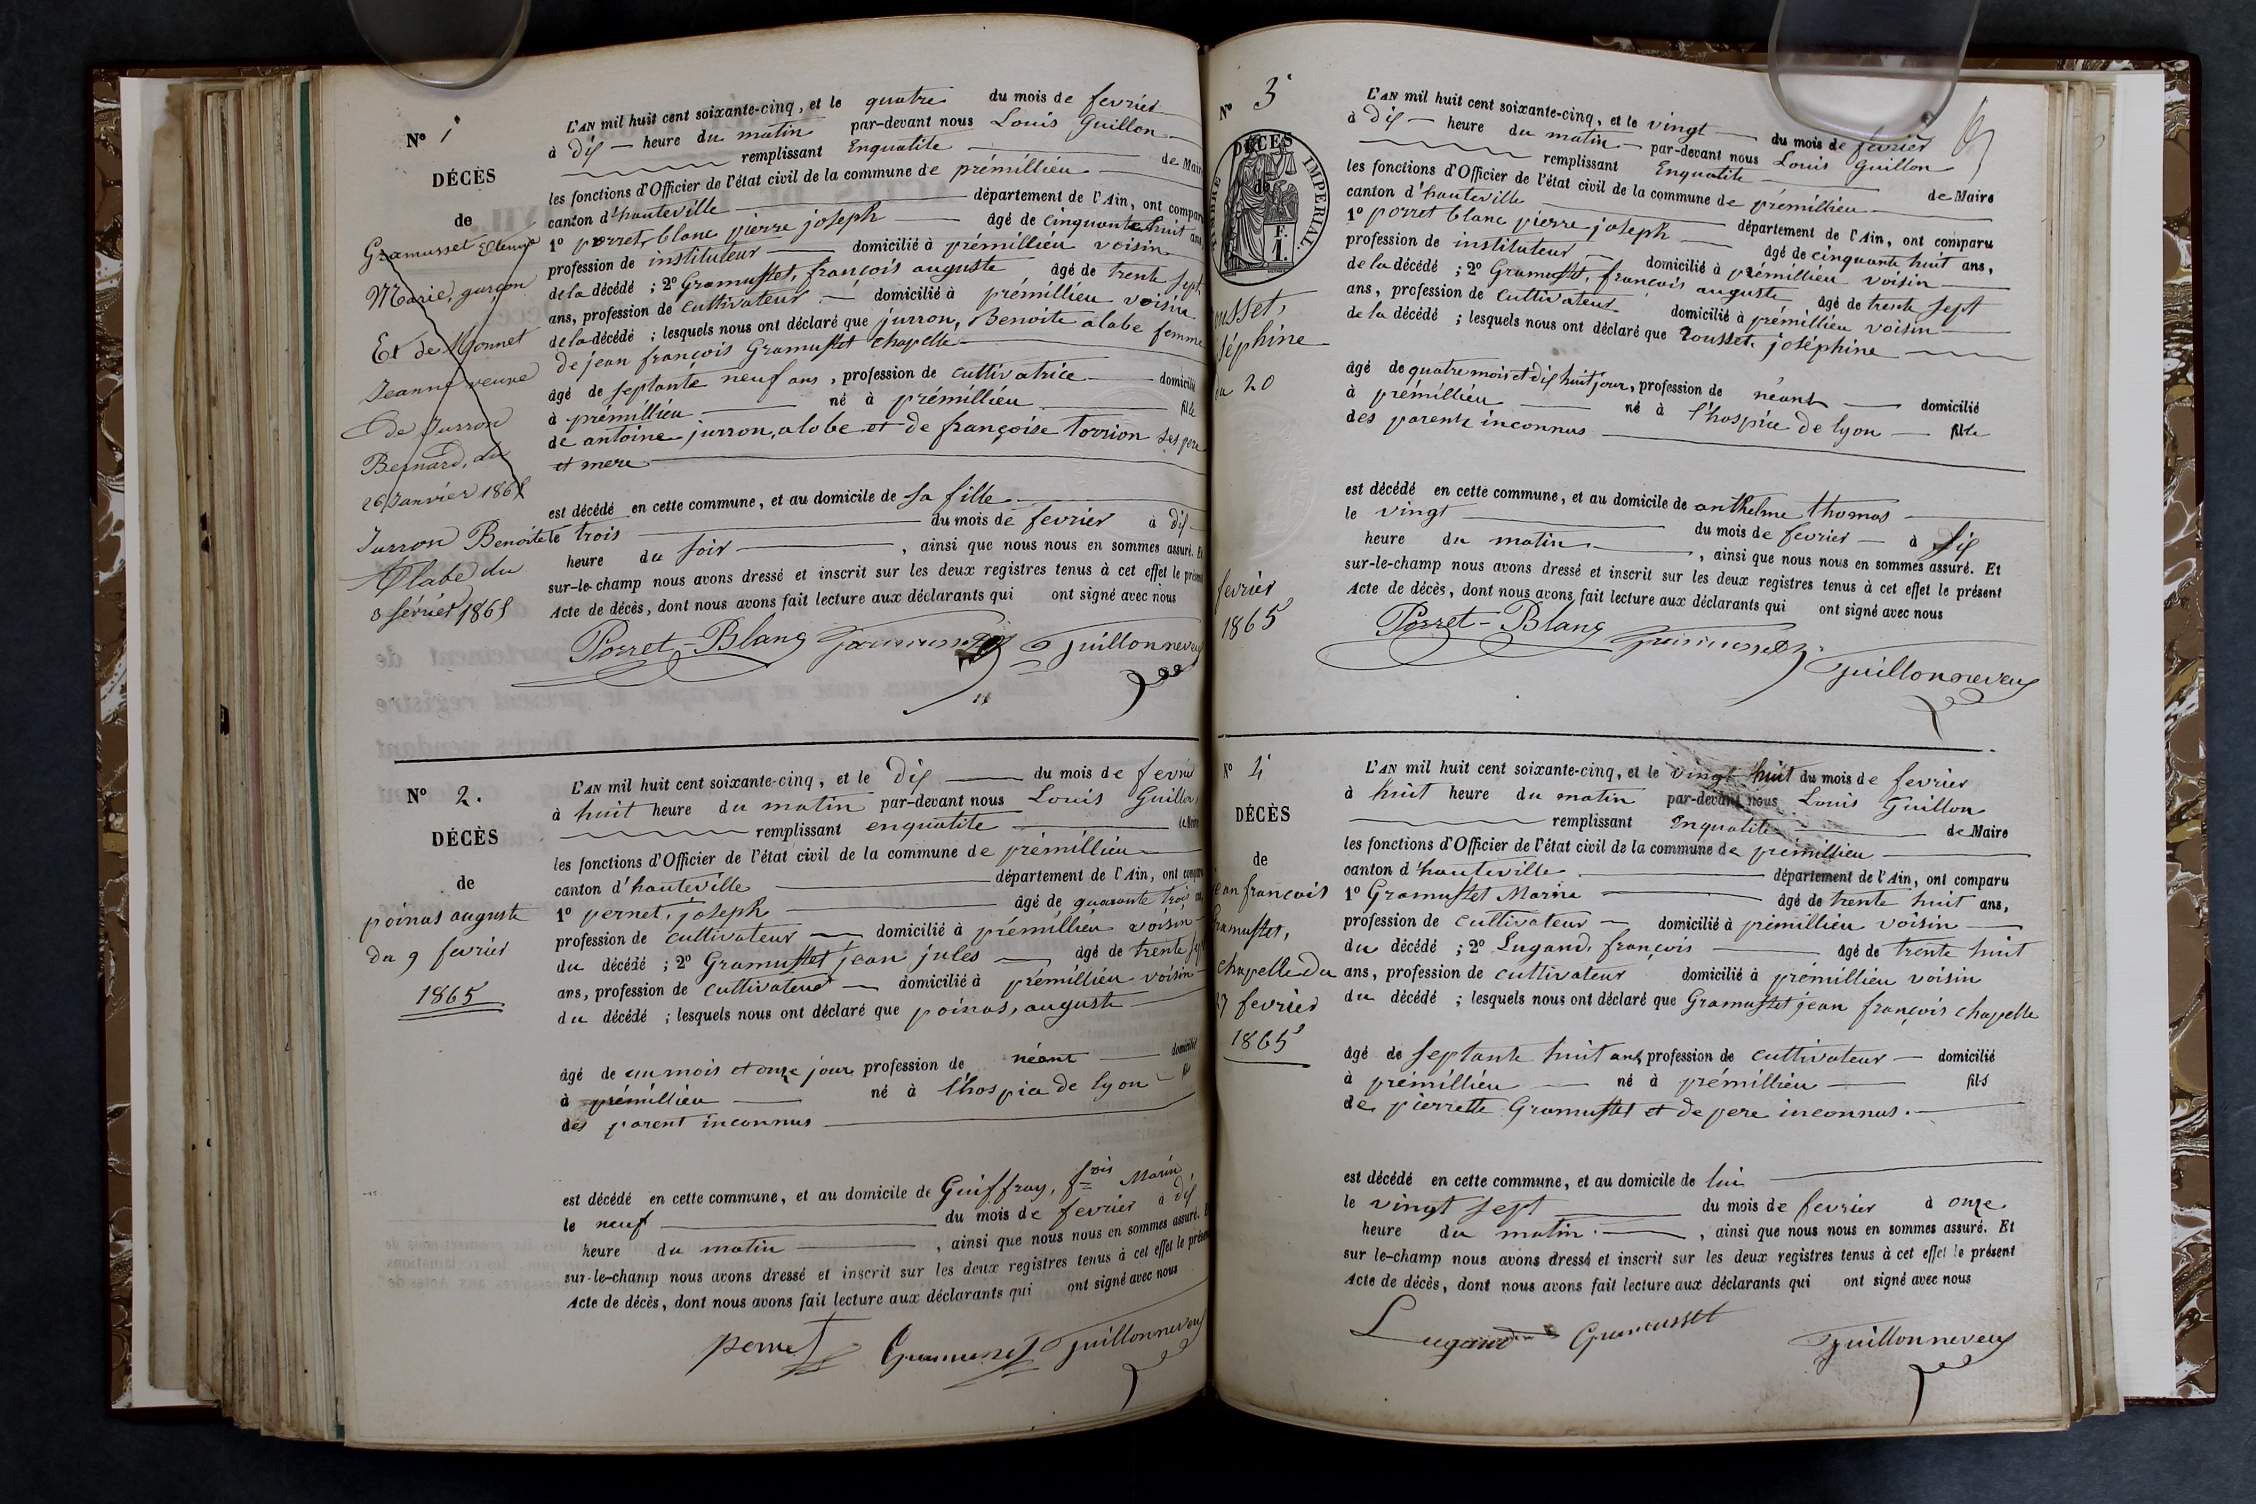 Nº 1
DÉCÈS
de
Gramusset
Marie, garçon
Et de Monnet
Jeanne veuve
de Jurron
Bernard, du
26 Janvier 1865
Jurron Benoite
Alabe du
3 février 1865
L'AN mil huit cent soixante-cinq, et le quatre du mois de fevrier
à dix heure du matin par-devant nous Louis Guillon
remplissant Enqualite de Maire
les fonctions d'Officier de l'état civil de la commune de prémillieu
canton d'hauteville département de l'Ain, ont comparu
1º porret, blanc pierre joseph âgé de cinquante huit ans
profession de instituteur domicilié à prémillieu voisin
de la décédé ; 2º Gramusset, françois auguste âgé de trente sept
ans, profession de cultivateur domicilié à prémillieu voisin
de la décédé ; lesquels nous ont déclaré que jurron, Benoite alabe femme
de jean françois Gramusset chapelle
âgé de septante neuf ans, profession de cultivatrice domicilié
à prémillieu né à prémillieu fille
de antoine jurron, alabe et de françoise torrion ses pere
et mere
est décédé en cette commune, et au domicile de sa fille
le trois du mois de fevrier à dix
heure du soir, ainsi que nous nous en sommes assuré. Et
sur-le-champ nous avons dressé et inscrit sur les deux registres tenus à cet effet le présent
Acte de décès, dont nous avons fait lecture aux déclarants qui ont signé avec nous
Porret-Blanc Gramusset Guillonneveu
Nº 2.
DÉCÈS
de
poinas auguste
du 9 fevrier
1865
L'AN mil huit cent soixante-cinq, et le dix du mois de fevrier
à huit heure du matin par-devant nous Louis Guillon
remplissant enqualite de Maire
les fonctions d'Officier de l'état civil de la commune de prémillieu
canton d'hauteville département de l'Ain, ont comparu
1º pernet, joseph âgé de quarante trois ans
profession de cultivateur domicilié à prémillieu voisin
du décédé ; 2º Gramusset jean jules âgé de trente sept
ans, profession de cultivateur domicilié à prémillieu voisin
du décédé ; lesquels nous ont déclaré que poinas, auguste
âgé de un mois et onze jours profession de néant domicilié
à prémillieu né à l'hospice de lyon fils
des parent inconnus
est décédé en cette commune, et au domicile de Guiffray, fois Marin
le neuf du mois de fevrier à dix
heure du matin, ainsi que nous nous en sommes assuré. Et
sur-le-champ nous avons dressé et inscrit sur les deux registres tenus à cet effet le présent
Acte de décès, dont nous avons fait lecture aux déclarants qui ont signé avec nous
pernet Gramusset Guillonneveu
Nº 3
DÉCÈS
de
TIMBRE IMPERIAL.
F.
1.
ousset,
séphine
du 20
fevrier
1865
L'AN mil huit cent soixante-cinq, et le vingt du mois de fevrier
à dix heure du matin par-devant nous Louis Guillon
remplissant Enqualite de Maire
les fonctions d'Officier de l'état civil de la commune de prémillieu
canton d'hauteville département de l'Ain, ont comparu
1º porret blanc pierre joseph âgé de cinquante huit ans,
profession de instituteur domicilié à prémillieu voisin
de la décédé ; 2º Gramusset, françois auguste âgé de trente sept
ans, profession de cultivateur domicilié à prémillieu voisin
de la décédé ; lesquels nous ont déclaré que rousset, joséphine
âgé de quatre mois et dix huit jour, profession de néant domicilié
à prémillieu né à l'hospice de lyon fille
des parents inconnus
est décédé en cette commune, et au domicile de anthelme thomas
le vingt du mois de fevrier à six
heure du matin, ainsi que nous nous en sommes assuré. Et
sur-le-champ nous avons dressé et inscrit sur les deux registres tenus à cet effet le présent
Acte de décès, dont nous avons fait lecture aux déclarants qui ont signé avec nous
Porret-Blanc Gramusset Guillonneveu
Nº 4
DÉCÈS
de
jean françois
Gramusset,
chapelle du
27 fevrier
1865
L'AN mil huit cent soixante-cinq, et le vingt huit du mois de fevrier
à huit heure du matin par-devant nous Louis Guillon
remplissant Enqualite de Maire
les fonctions d'Officier de l'état civil de la commune de prémillieu
canton d'hauteville département de l'Ain, ont comparu
1º Gramusset Marin âgé de trente huit ans,
profession de cultivateur domicilié à prémillieu voisin
du décédé ; 2º Lugand, françois âgé de trente huit
ans, profession de cultivateur domicilié à prémillieu voisin
du décédé ; lesquels nous ont déclaré que Gramusset jean françois chapelle
âgé de septante huit ans, profession de cultivateur domicilié
à prémillieu né à prémillieu fils
de pierrette Gramusset et de pere inconnus.
est décédé en cette commune, et au domicile de lui
le vingt sept du mois de fevrier à onze
heure du matin, ainsi que nous nous en sommes assuré. Et
sur le-champ nous avons dressé et inscrit sur les deux registres tenus à cet effet le présent
Acte de décès, dont nous avons fait lecture aux déclarants qui ont signé avec nous
Lugand Gramusset Guillonneveu